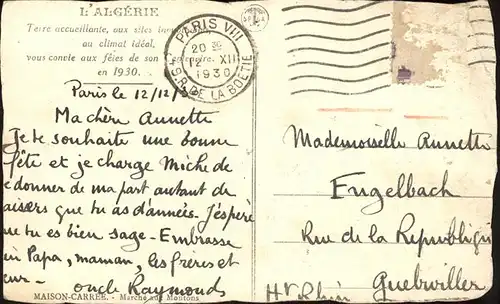 L'ALGÉRIE
Terre accueillante, aux sites
au climat idéal,
vous convie aux fêtes de son Centenaire.
en 1930.
PARIS VIII
20 30
12 XII
1930
R. DE LA BOETIE
Paris le 12/12/
Ma chère Annette
Je te souhaite une bonne
fête et je charge Miche de
te donner de ma part autant de
baisers que tu as d'années. J'espère
que tu es bien sage. Embrasse
bien Papa, maman, les frères et
sœur-
oncle Raymond
MAISON-CARRÉE. - Marché aux Moutons
Mademoiselle Annette
Engelbach
Rue de la République
Guebwiller
Ht Rhin